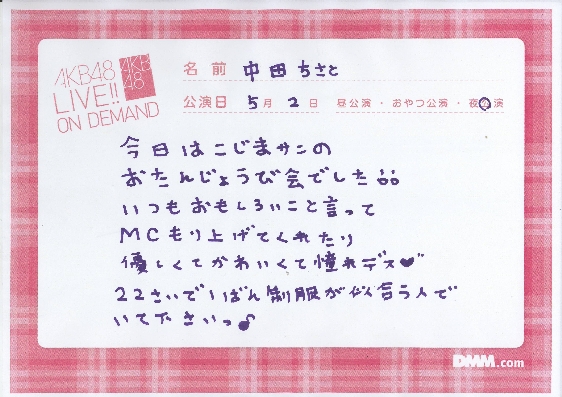 AKB48
LIVE!!
ON DEMAND
AKB
48
名前 中田ちさと
公演日 5月 2日 昼公演・おやつ公演・夜公演
今日はこじまサンの
おたんじょうび会でした
いつもおもしろいこと言って
MCもり上げてくれたり
優しくてかわいくて憧れデス♥
22さいでいばん制服が似合う人で
いて下さいっ♪
DMM.com